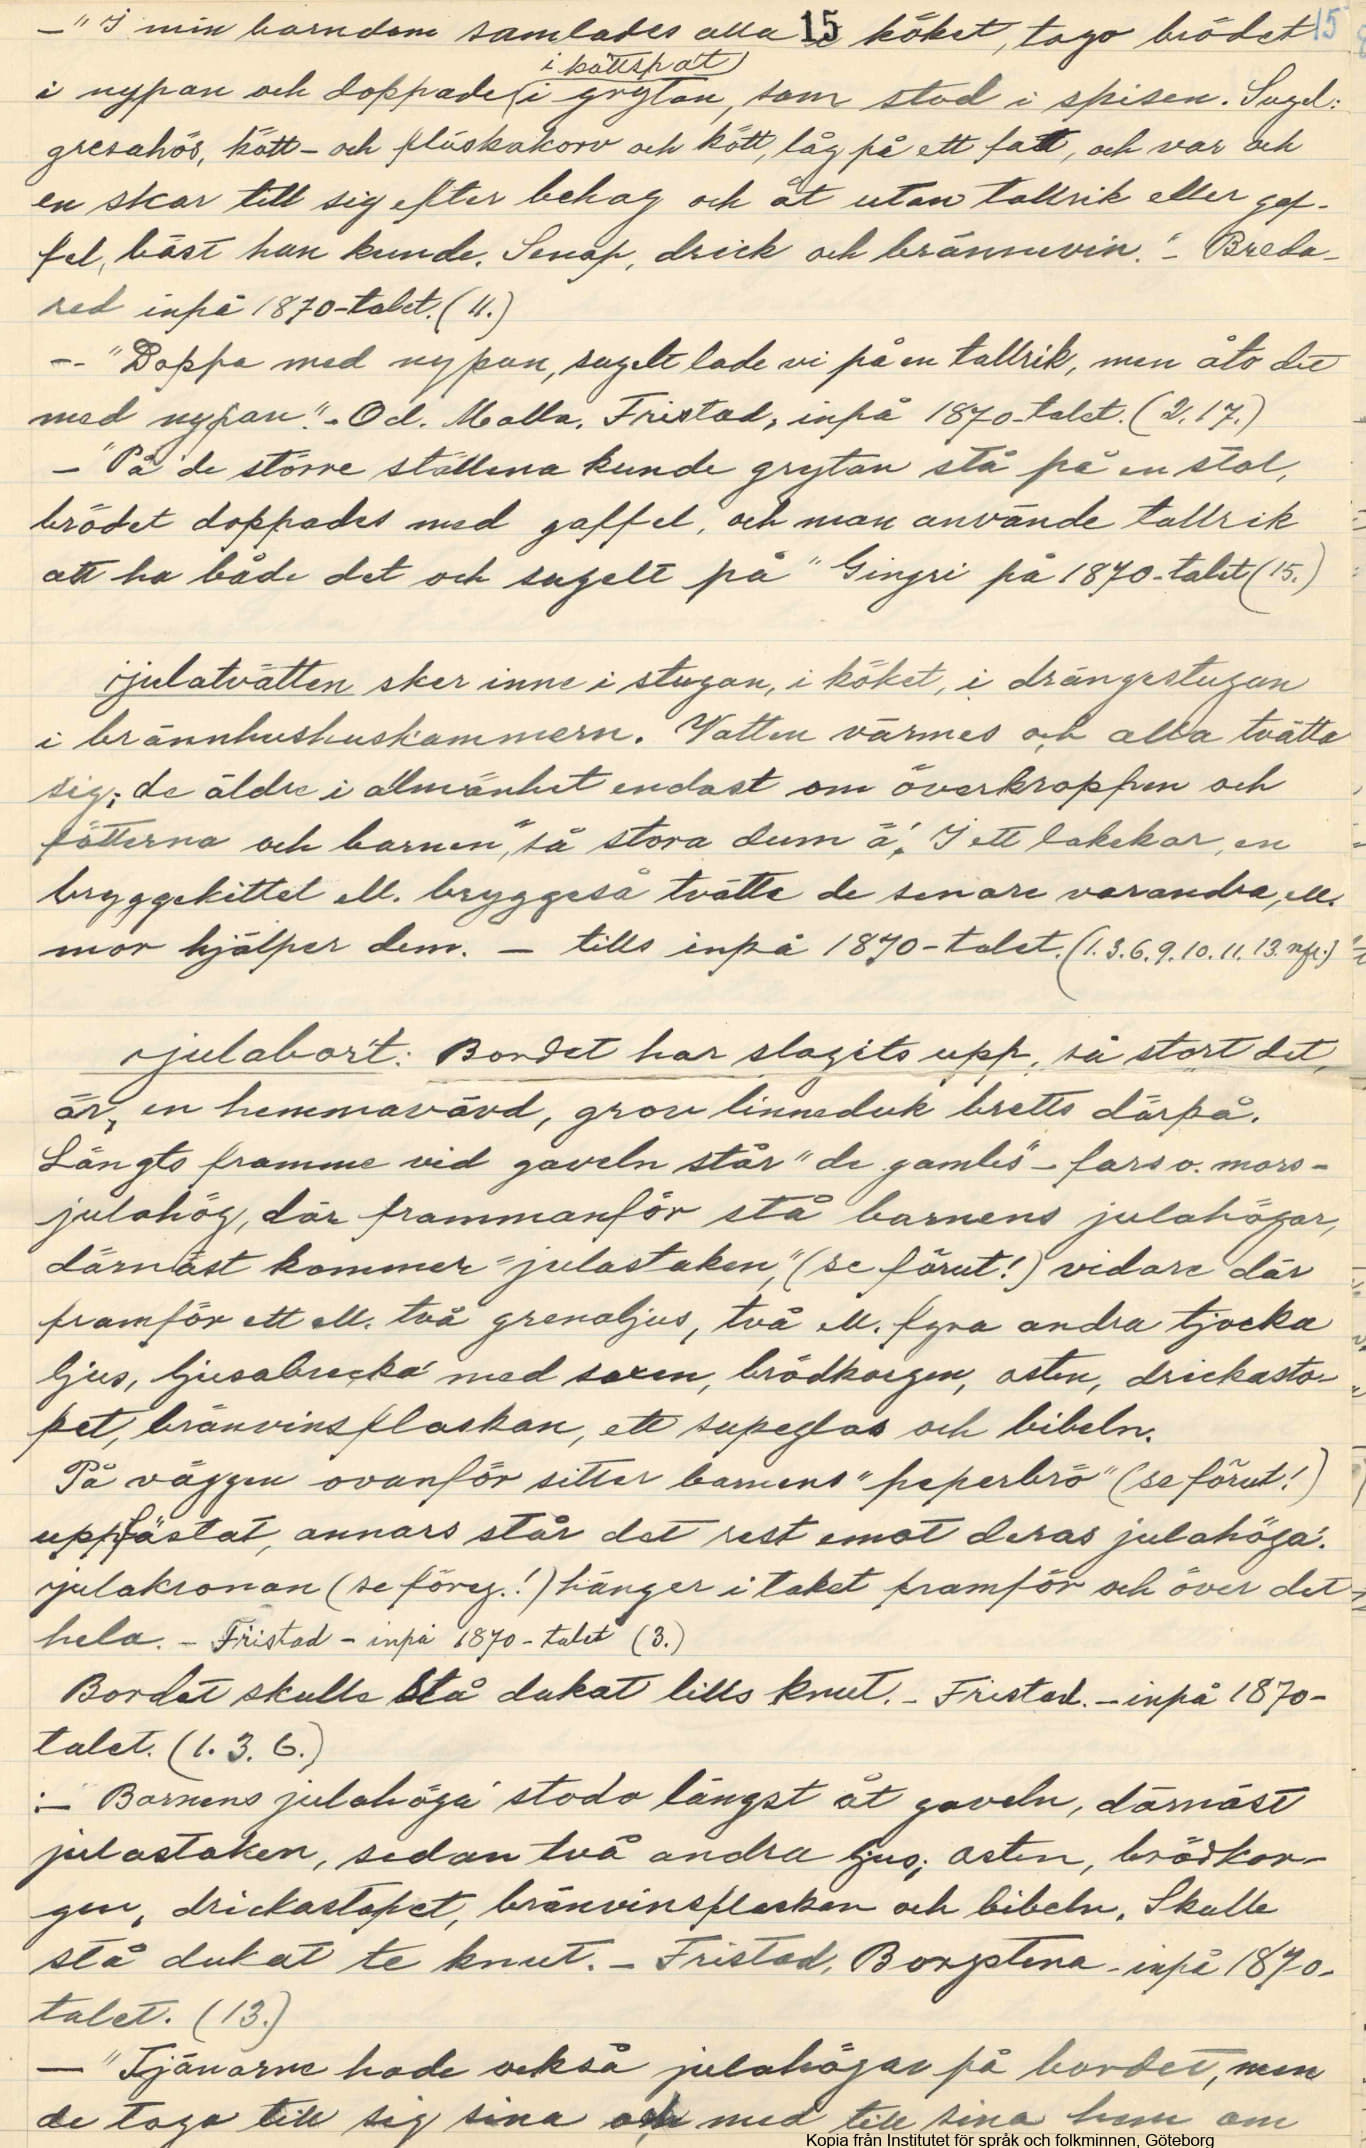 –"I min barndom samlades alla i köket, togo brödet 15
15
i köttspat
i nypan och doppade i grytan, som stod i spisen. Sugel:
gresahös, kött- och fläskakorv och kött, låg på ett fatt, och var och
en skar till sig efter behag och åt utan tallrik eller gaf-
fel, bäst han kunde. Senap, drick och brännevin." – Breda-
red inpå 1870-talet. (11.)
– "Doppa med nypan, sugelt lade vi på en tallrik, men åto det
med nypan". – Od. Molla. Fristad, inpå 1870-talet. (2. 17.)
– "På de större ställena kunde grytan stå på en stol,
brödet doppades med gaffel, och man använde tallrik
att ha både det och sugelt på" Gingri på 1870-talet (15.)
julatvätten sker inne i stugan, i köket, i drängastugan
i brännhuskammern. Vatten värmes och alla tvätta
sig; de äldre i allmänhet endast om överkroppen och
fötterna och barnen "så stora dum ä". I ett bakekar, en
bryggekittel ell. bryggeså tvätta de senare varandra, ell.
mor hjälper dem. – tills inpå 1870-talet. (1. 3. 6. 9. 10. 11. 13. m.fl.)
julabort: Bordet har slagits upp, så stort det
är, en hemmavävd, grov linneduk bretts därpå.
Längts framme vid gaveln står "de gamles" – fars o. mors –
julahög, där frammanför stå barnens julahögar,
därnäst kommer "julastaken," (se förut!) vidare där
framför ett ell. två grenaljus, två ell. fyra andra tjocka
ljus, ljusabrecka med saxen, brödkorgen, osten, drickasto-
pet, bränvinsflaskan, ett supeglas och bibeln.
På väggen ovanför sitter barnens "peperbrö" (se förut!)
uppfästat, annars står det rest emot deras julahöga.
julakronan (se föreg.!) hänger i taket framför och över det
hela. – Fristad – inpå 1870-talet (3.)
Bordet skulle stå dukat tills knut. – Fristad. – inpå 1870-
talet. (1. 3. 6.)
:– Barnens julahöga stodo längst åt gaveln, därnäst
julastaken, sedan två andra ljus; osten, brödkor-
gen, drickastopet, bränvinsflaskan och bibeln. Skulle
stå dukat te knut. – Fristad, Borgstena – inpå 1870-
talet. (13.)
– "Tjänarne hade också julahögar på bordet, men
de togo till sig sina och med till sina hem om
Kopia från Institutet för språk och folkminnen, Göteborg